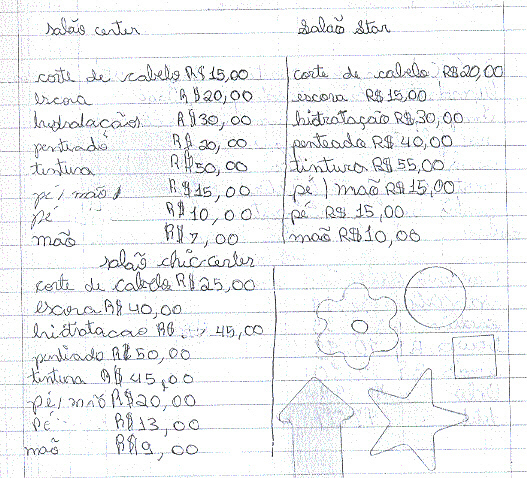 salão center
corte de cabelo R$15,00
escora R$20,00
hydratações R$30,00
pentiado R$20,00
tintura R$50,00
pé/mão R$15,00
pé R$10,00
mão R$7,00
Salão Star
corte de cabelo R$20,00
escora R$15,00
hidrataçaõ R$30,00
penteado R$40,00
tintura R$55,00
pé/maõ R$15,00
pé R$15,00
maõ R$10,00
salaõ chic center
corte de cabelo R$25,00
escora R$40,00
hidratacao R$ 45,00
pentiado R$50,00
tintura R$45,00
pé/maõ R$20,00
Pé R$13,00
maõ R$9,00